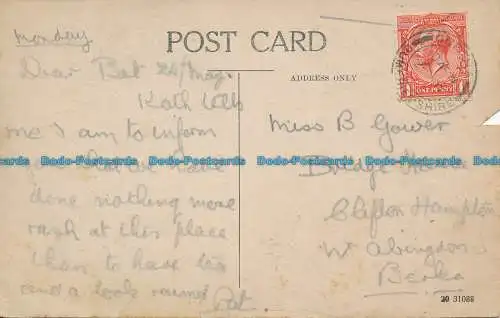 Monday
POST CARD
Dear Bet 24/May.
ADDRESS ONLY
Kath tells
me I am to inform
you that we have
done nothing more
rash at this place
than to have tea
and a look round
Pat.
ONE PENNY
Miss B Gower
Bridge House
Clifton Hampton
Nr Abingdon
Berks
Dodo-Postcards Dodo-Postcards Dodo-Postcards Dodo-Postcards
20 31088